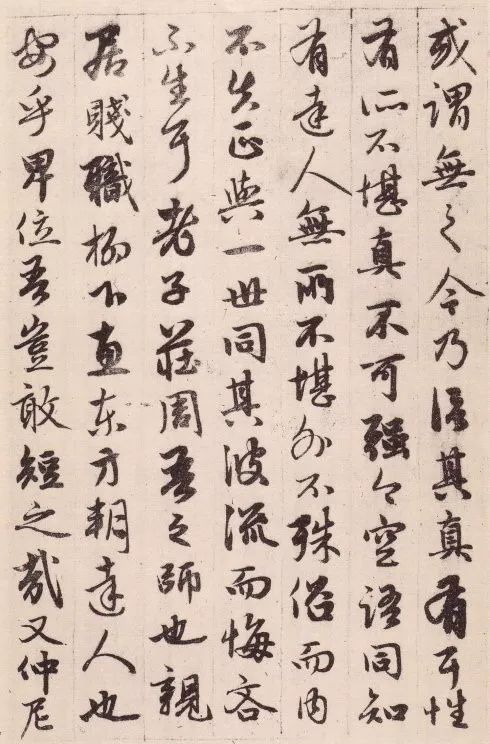 或謂無之今乃信其真有耳性
有所不堪真不可強今空語同知
有達人無所不堪外不殊俗而內
不失正與一世同其波流而悔吝
不生耳老子莊周吾之師也親
居賤職柳下惠東方朔達人也
安乎卑位吾豈敢短之哉又仲尼